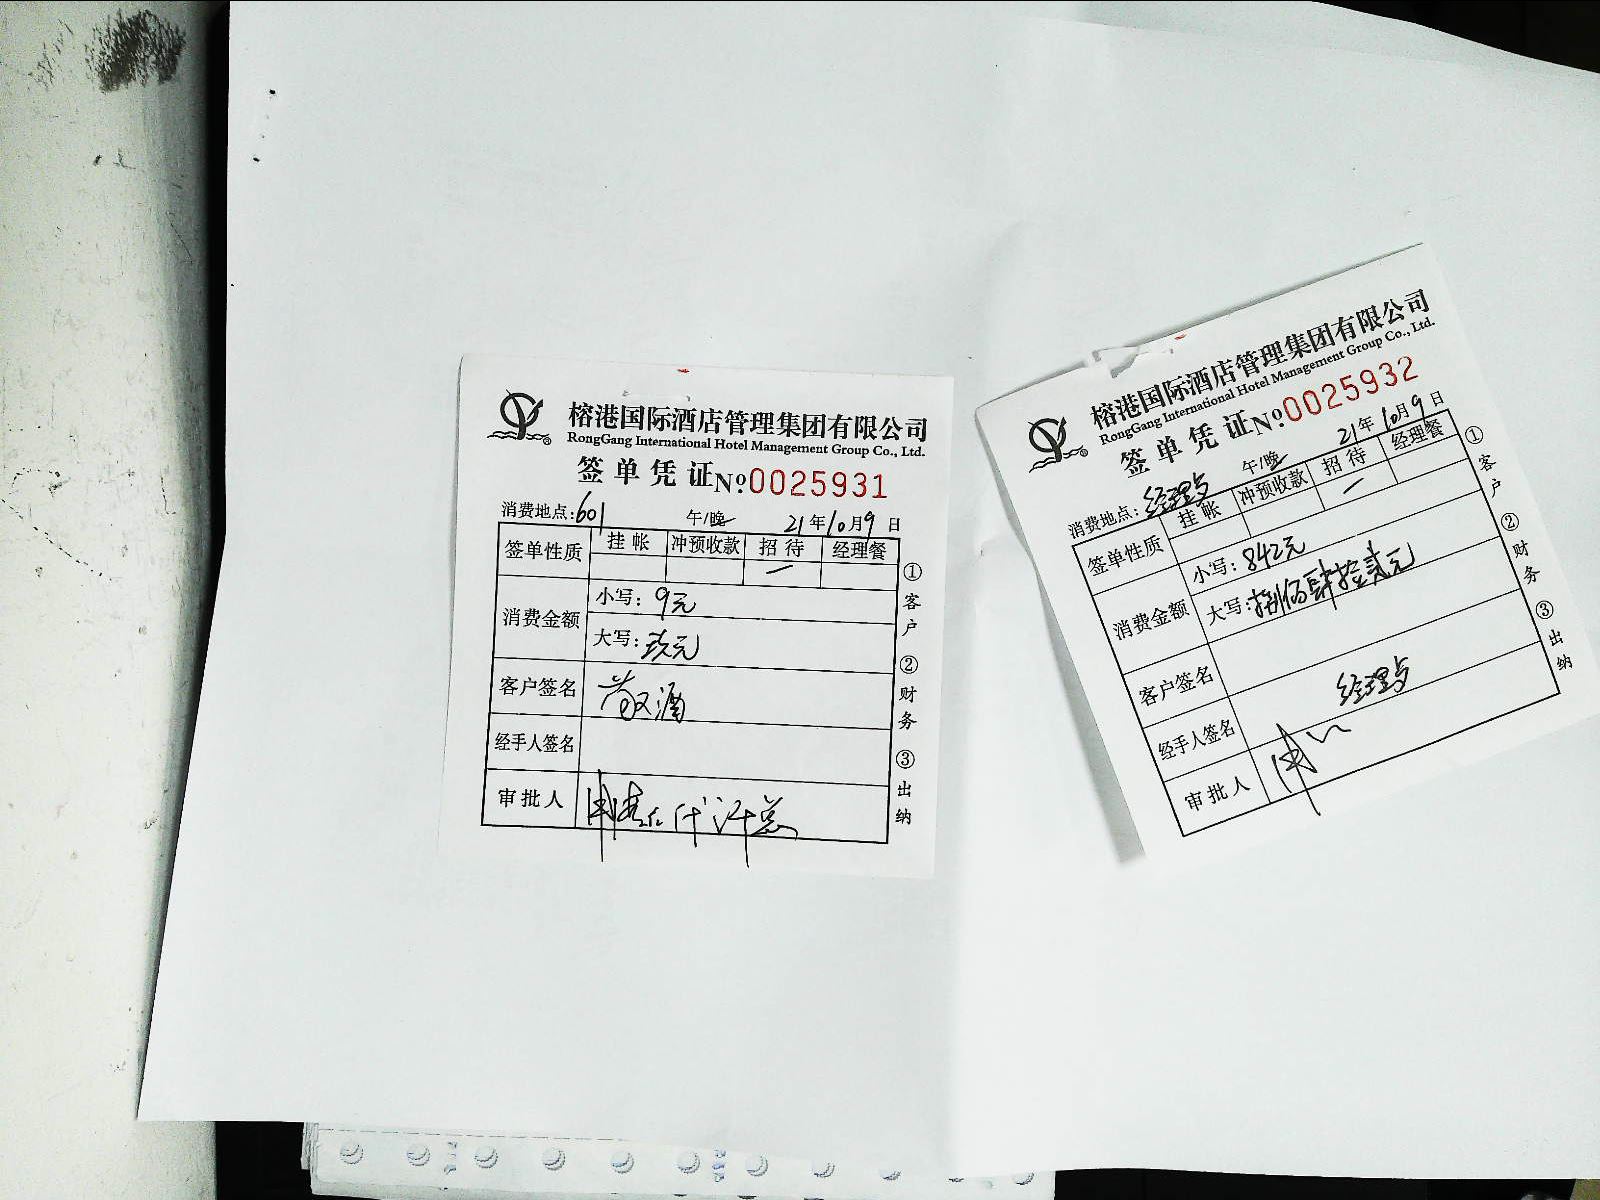 榕港国际酒店管理集团有限公司
RongGang International Hotel Management Group Co., Ltd.
签单凭证 Nº 0025931
消费地点:601 午/晚 21年10月9日
签单性质 挂帐 冲预收款 招待 经理餐
消费金额 小写:9元
大写:玖元
客户签名 敬酒
经手人签名
审批人
①客户 ②财务 ③出纳
榕港国际酒店管理集团有限公司
RongGang International Hotel Management Group Co., Ltd.
签单凭证 Nº 0025932
消费地点:经理 午/晚 21年10月9日
签单性质 挂帐 冲预收款 招待 经理餐
消费金额 小写:842元
大写:捌佰肆拾贰元
客户签名
经手人签名 经理
审批人
①客户 ②财务 ③出纳